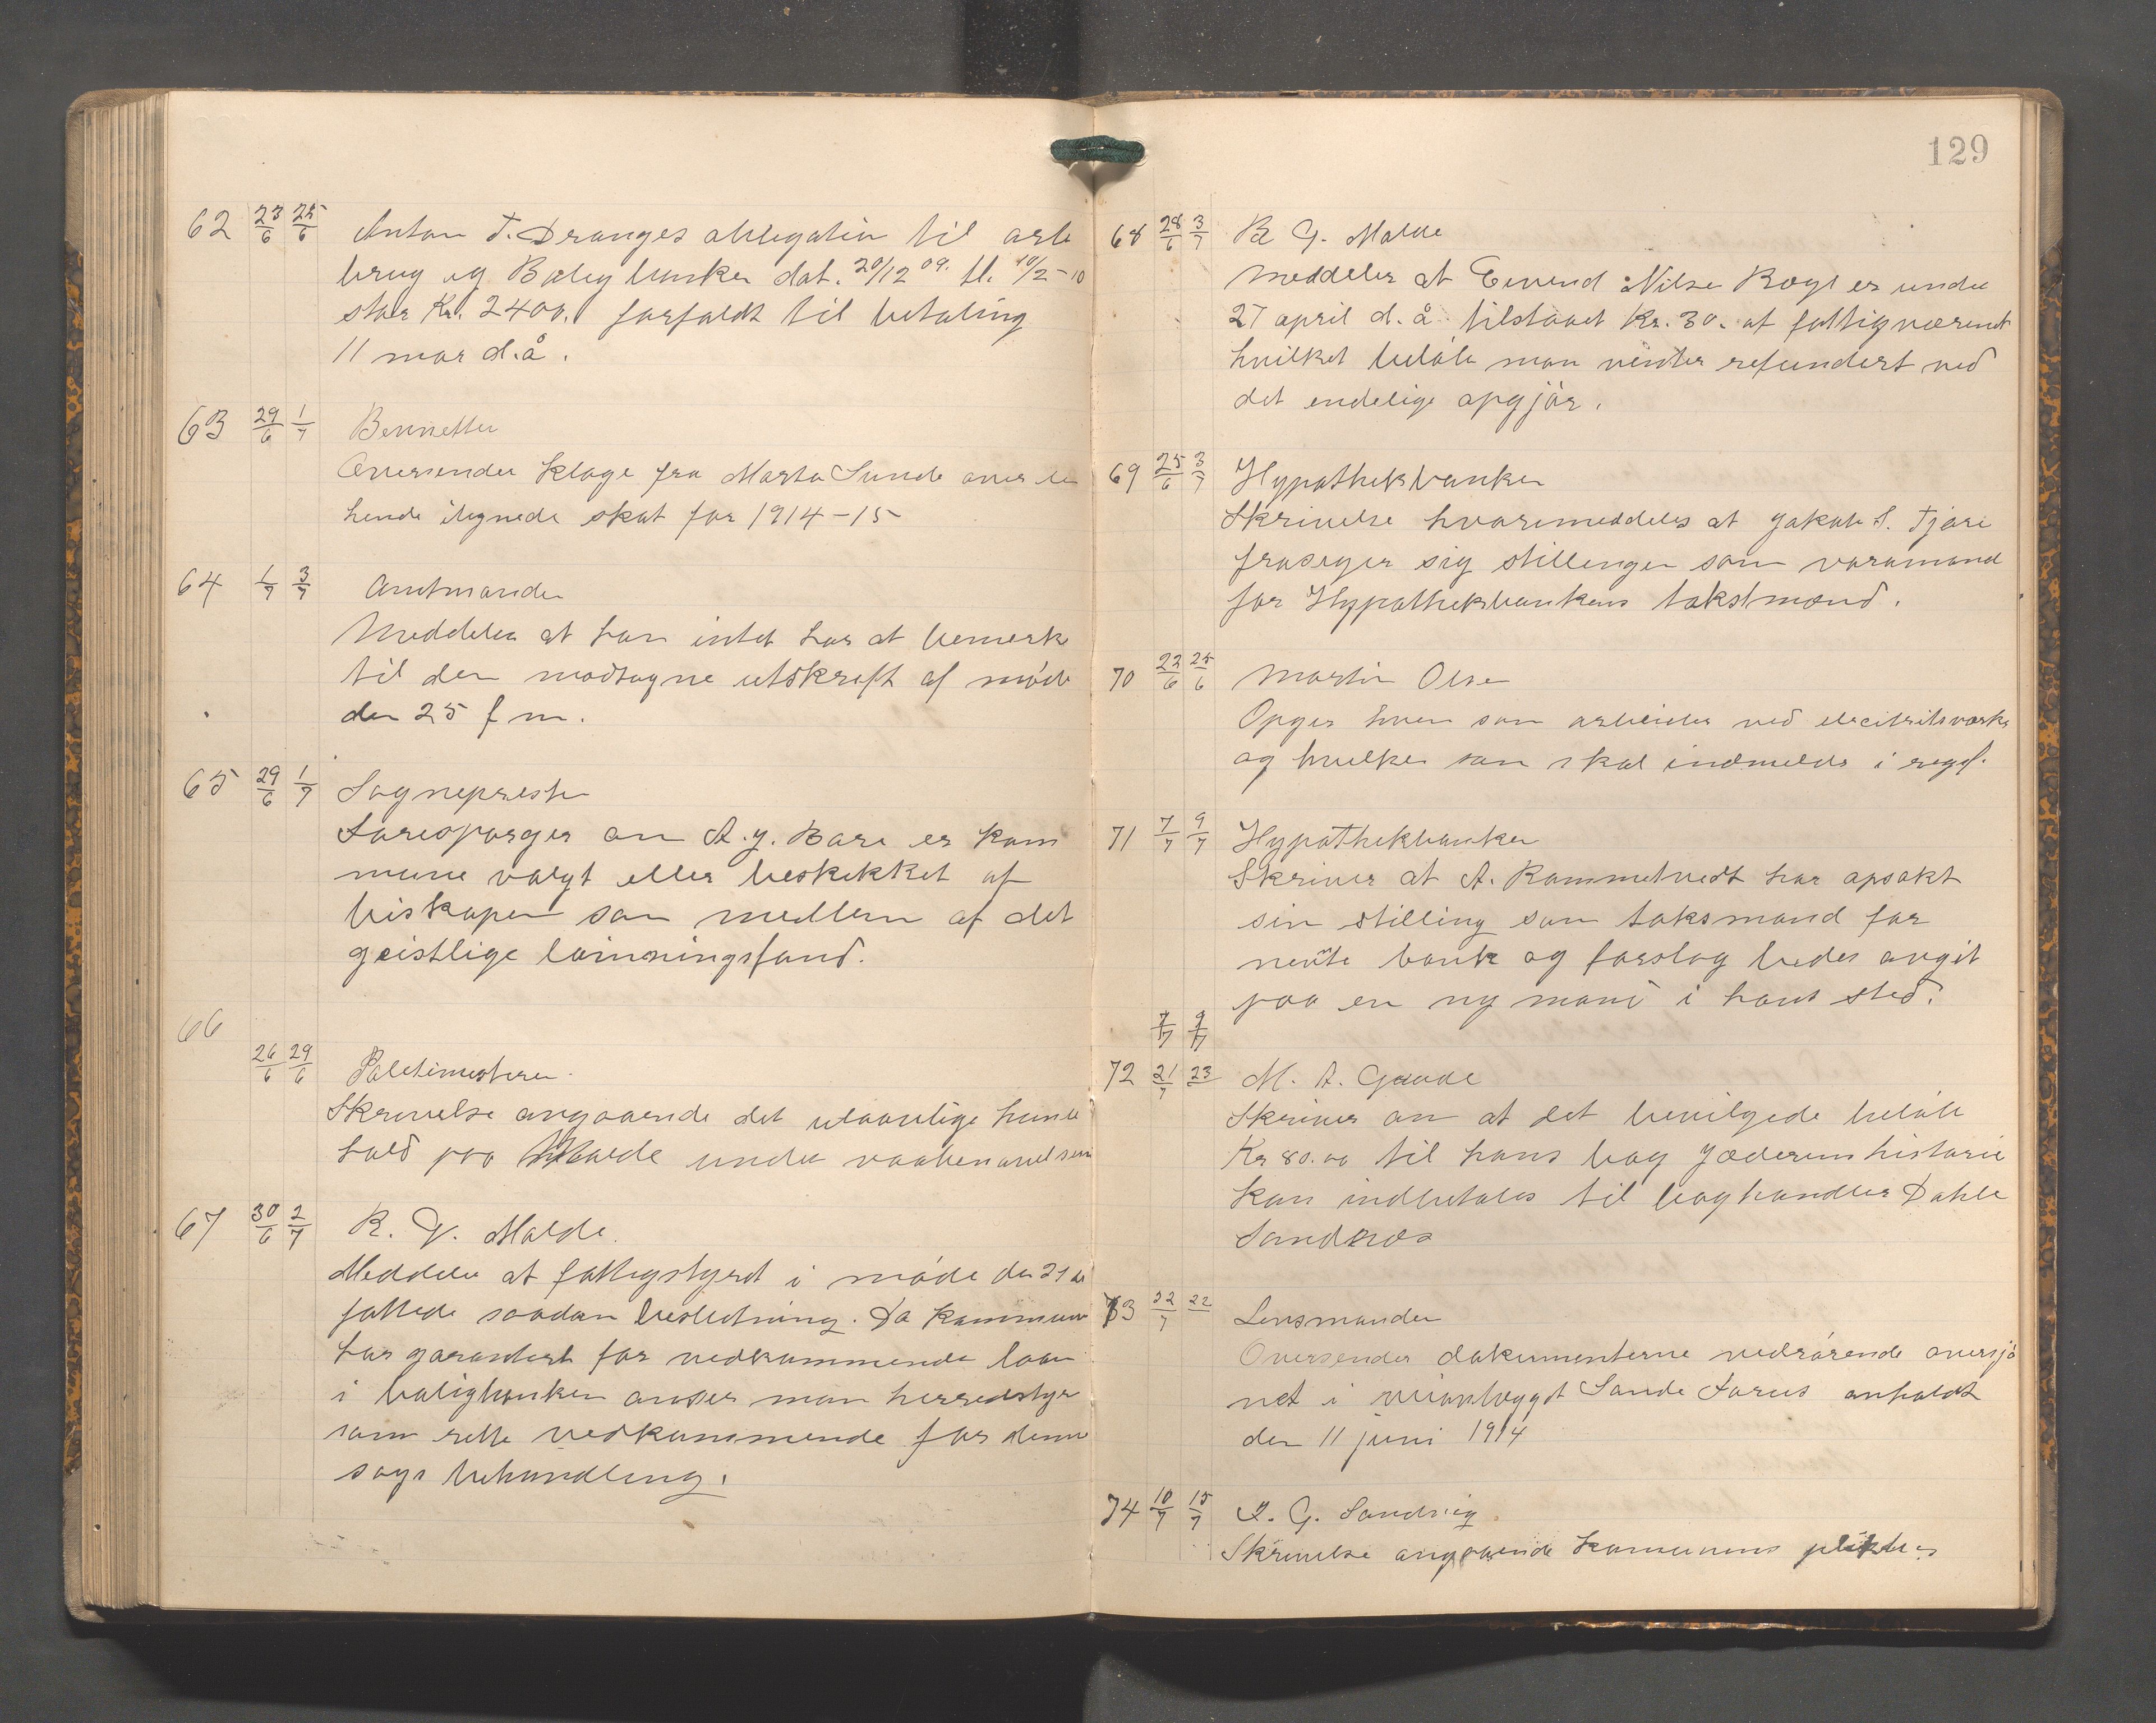 62 23/6 25/6 Anton T. Dranges obligation til arb
brug og Bolig banken dat. 20/12 09. tl. 10/2-10
stor Kr. 2400. forfaldt til betaling
11 mar d.å.
63 29/6 1/7 Bennetter
Oversender klage fra Marta Sunde over
hende ilignede skat for 1914-15
64 1/7 3/7 Amtmanden
Meddeler at han intet har at bemerke
til den modtagne utskrift af møde
den 25 f m.
65 29/6 1/7 Sognepresten
Forespørger om A. J. Bore er kom
mune valgt eller beskikket af
biskopen som medlem af det
geistlige lønningsfond.
66
26/6 29/6 Politimesteren.
Skrivelse angaaende det ulovlige hande
hold paa Malde under vaabenøvelsen
67 30/6 2/7 R. G. Malde.
Meddeler at fattigstyret i møde den 21 de
fattede saadan beslutning. Da kommun
har garantert for vedkommende laan
i boligbanken anser man herredstyr
som rette vedkommende for denne
sags behandling.
129
68 28/6 3/7 R G. Malde
Meddeler at Eivend Nilsen Bogl er under
27 april d. å. tilstaaet Kr. 30. af fattigvæsenet
hvilket beløb man venter refundert ved
det endelige opgjør.
69 25/6 3/7 Hypothekbanken
Skrivelse hvori meddeles at Jakob S. Tjøri
frasiger sig stillingen som varamand
for Hypothekbankens takstmænd.
70 22/6 25/6 Martin Olsen
Opger hvem som arbeider ved electritsværke
og hvilken som skal indmeldes i
71 7/7 9/7 Hypothekbanken
Skriver at A. Rommetvedt har opsakt
sin stilling som taksmand for
nevnte bank og forslag bedes avgit
paa en ny mand i hans sted.
7/7 9/7
72 21/7 23 M. A. Grude
Skriver om at det bevilgede beløb
Kr 80.00 til hans bog Jæderens historie
kan indbetales til boghandler Dahle
Sandnes
73 22/7 22 Lensmanden
Oversender dokumenterne vedrørende oversjø
net i veianlægget Sande Forus avholdt
den 11 juni 1914
74 10/7 15/7 G. Sandvig
Skrivelse angaaende kommunens plikter